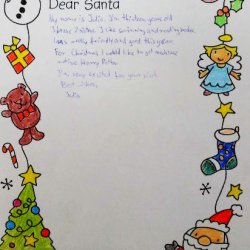 Dear Santa
My name is Julia. I'm thirteen years old
I have 2 sisters. I like swimming and reading books
I was very friendly and good this year.
For Christmas I would like to get
Harry Potter
I'm very excited for your visit.
Best wishes,
Julia